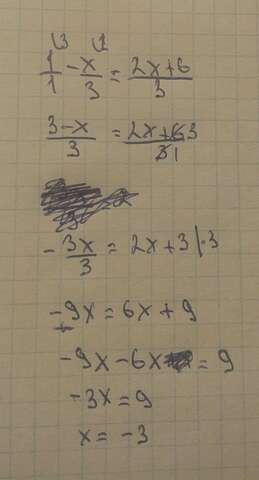 3 1
1/1 - x/3 = 2x+6/3
3-x/3 = 2x+63/31
- 3x/3 = 2x+3 |·3
-9x = 6x+9
-9x-6x = 9
-3x = 9
x = -3